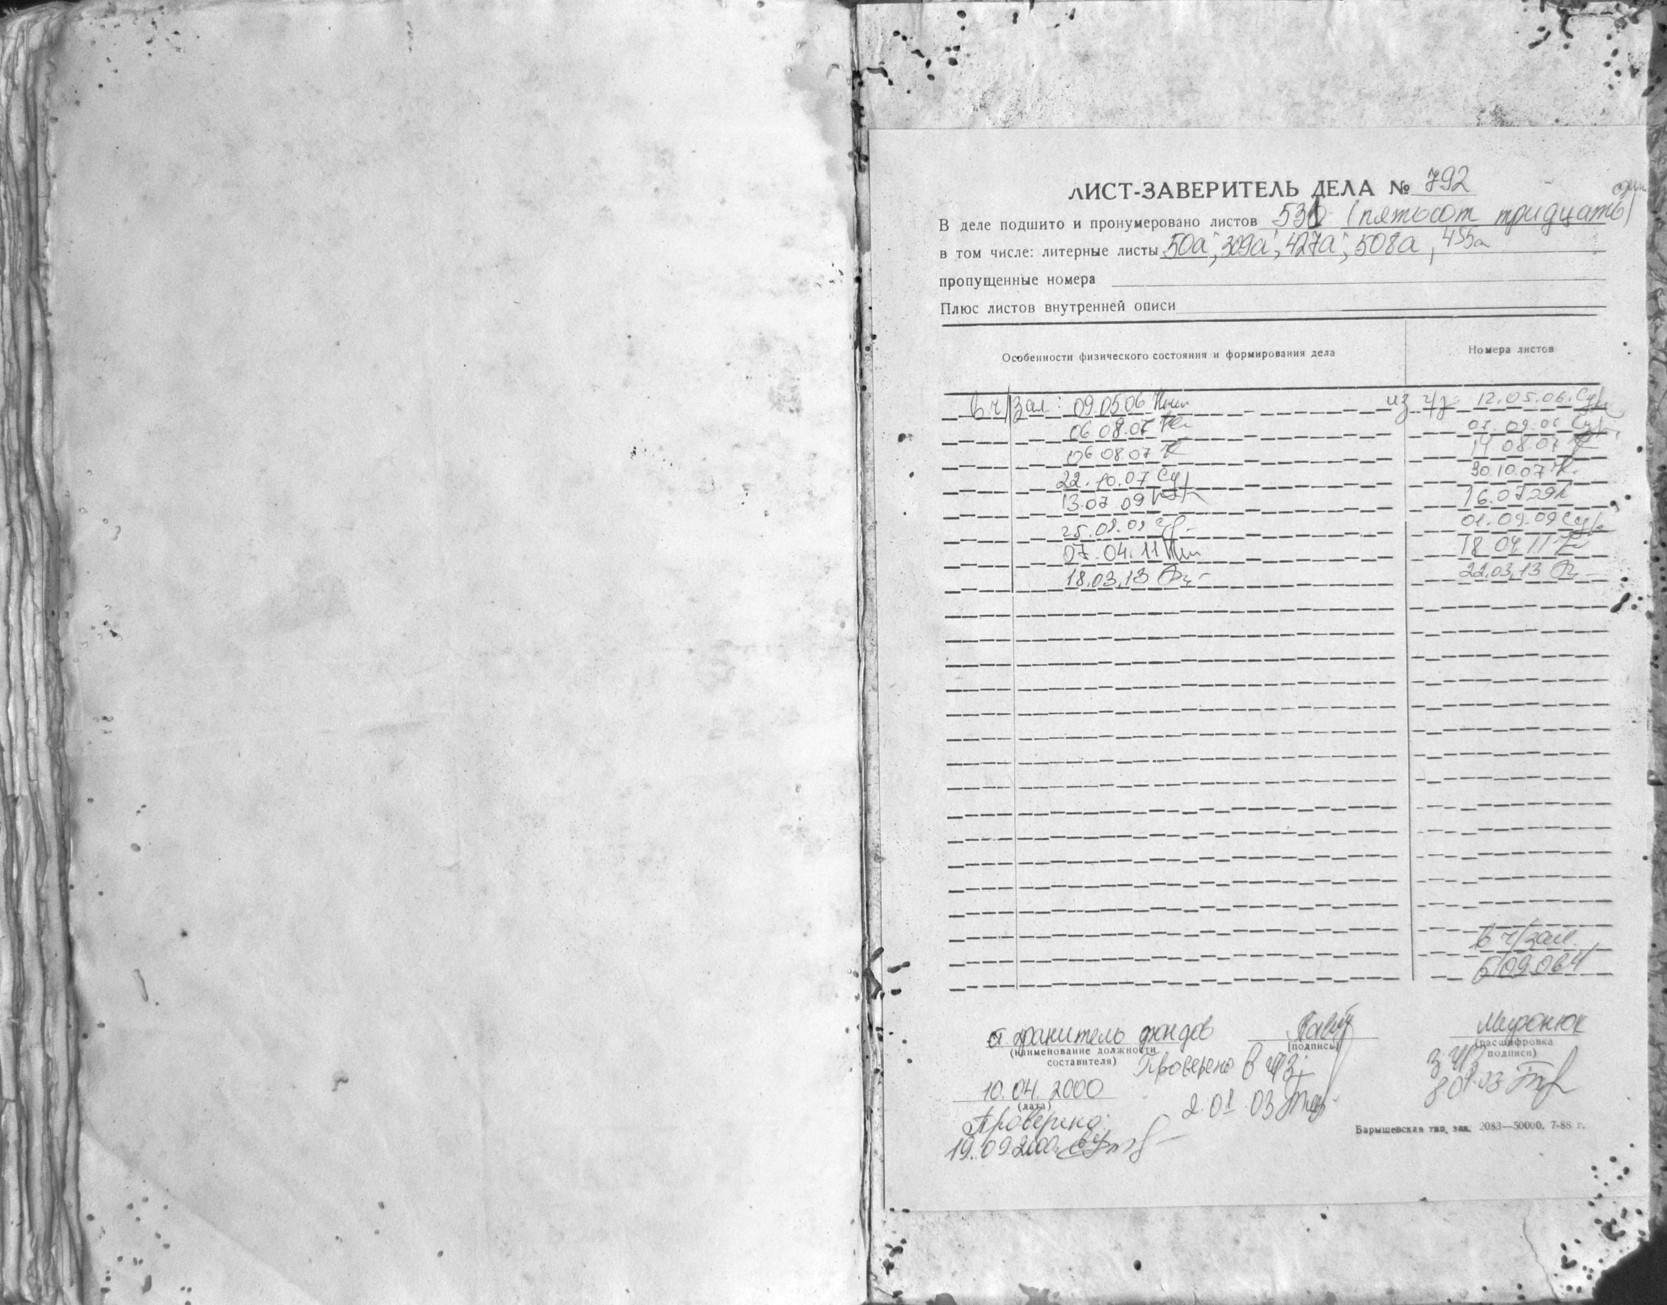 ЛИСТ-ЗАВЕРИТЕЛЬ ДЕЛА № 792
В деле подшито и пронумеровано листов 531 (пятьсот тридцать один)
в том числе: литерные листы 50а; 309а; 427а; 508а, 455а
пропущенные номера
Плюс листов внутренней описи
Особенности физического состояния и формирования дела Номера листов
в ч/зал: 09.05.06 из ч/з 12.05.06.
06.08.07
06 08 07 14 08.07
22.10.07 30.10.07
13.07 09 16.07
25.08.09 01.09.09
07.04.11 18 04 11
18.03.13 22.03.13
в ч/зал
хранитель фондов Миронюк
(наименование должности (подпись) (расшифровка
составителя) подписи)
Проверено в ч/з
10.04.2000
(дата) 2.01.03
Проверено:
19.09.2000
Барышевская тип. зак. 2083—50000. 7-88 г.